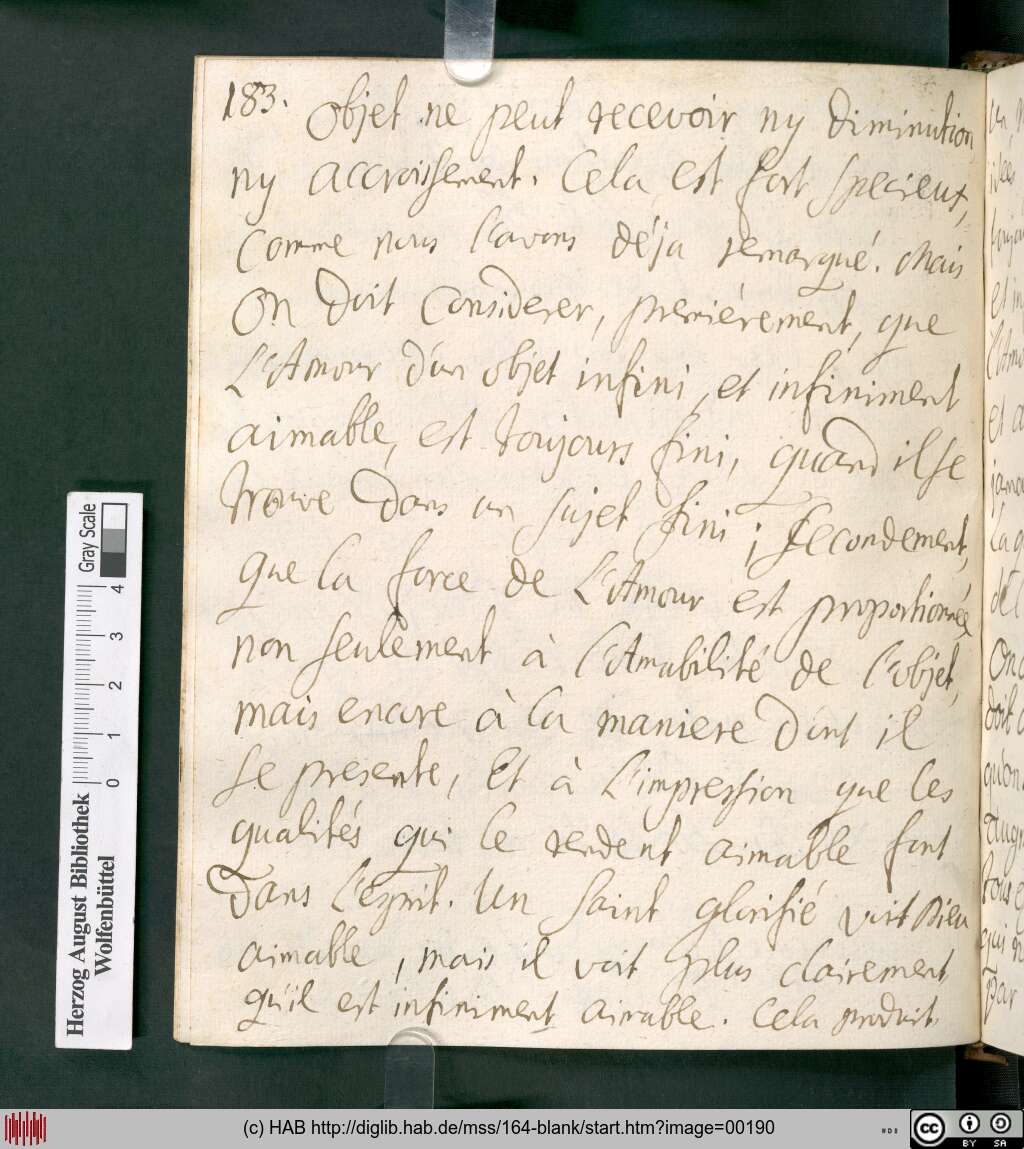 183. Objet ne peut recevoir ny diminution
ny accroissement. Cela est fort specieux,
comme nous l'avons déja remarqué. Mais
on doit considerer, premiérement, que
L'Amour d'un objet infini, et infiniment
aimable, est toujours fini, quand il se
trouve dans un sujet fini; secondement,
que la force de L'Amour est proportionnée
non seulement à l'Amabilité de l'objet,
mais encore à la maniere dont il
se presente, Et à l'impression que les
qualités qui le rendent aimable font
dans l'esprit. Un saint glorifié voit Dieu
aimable, mais il voit plus clairement
qu'il est infiniment aimable. Cela produit
Gray Scale
0 1 2 3 4
Herzog August Bibliothek
Wolfenbüttel
(c) HAB http://diglib.hab.de/mss/164-blank/start.htm?image=00190
cc BY SA